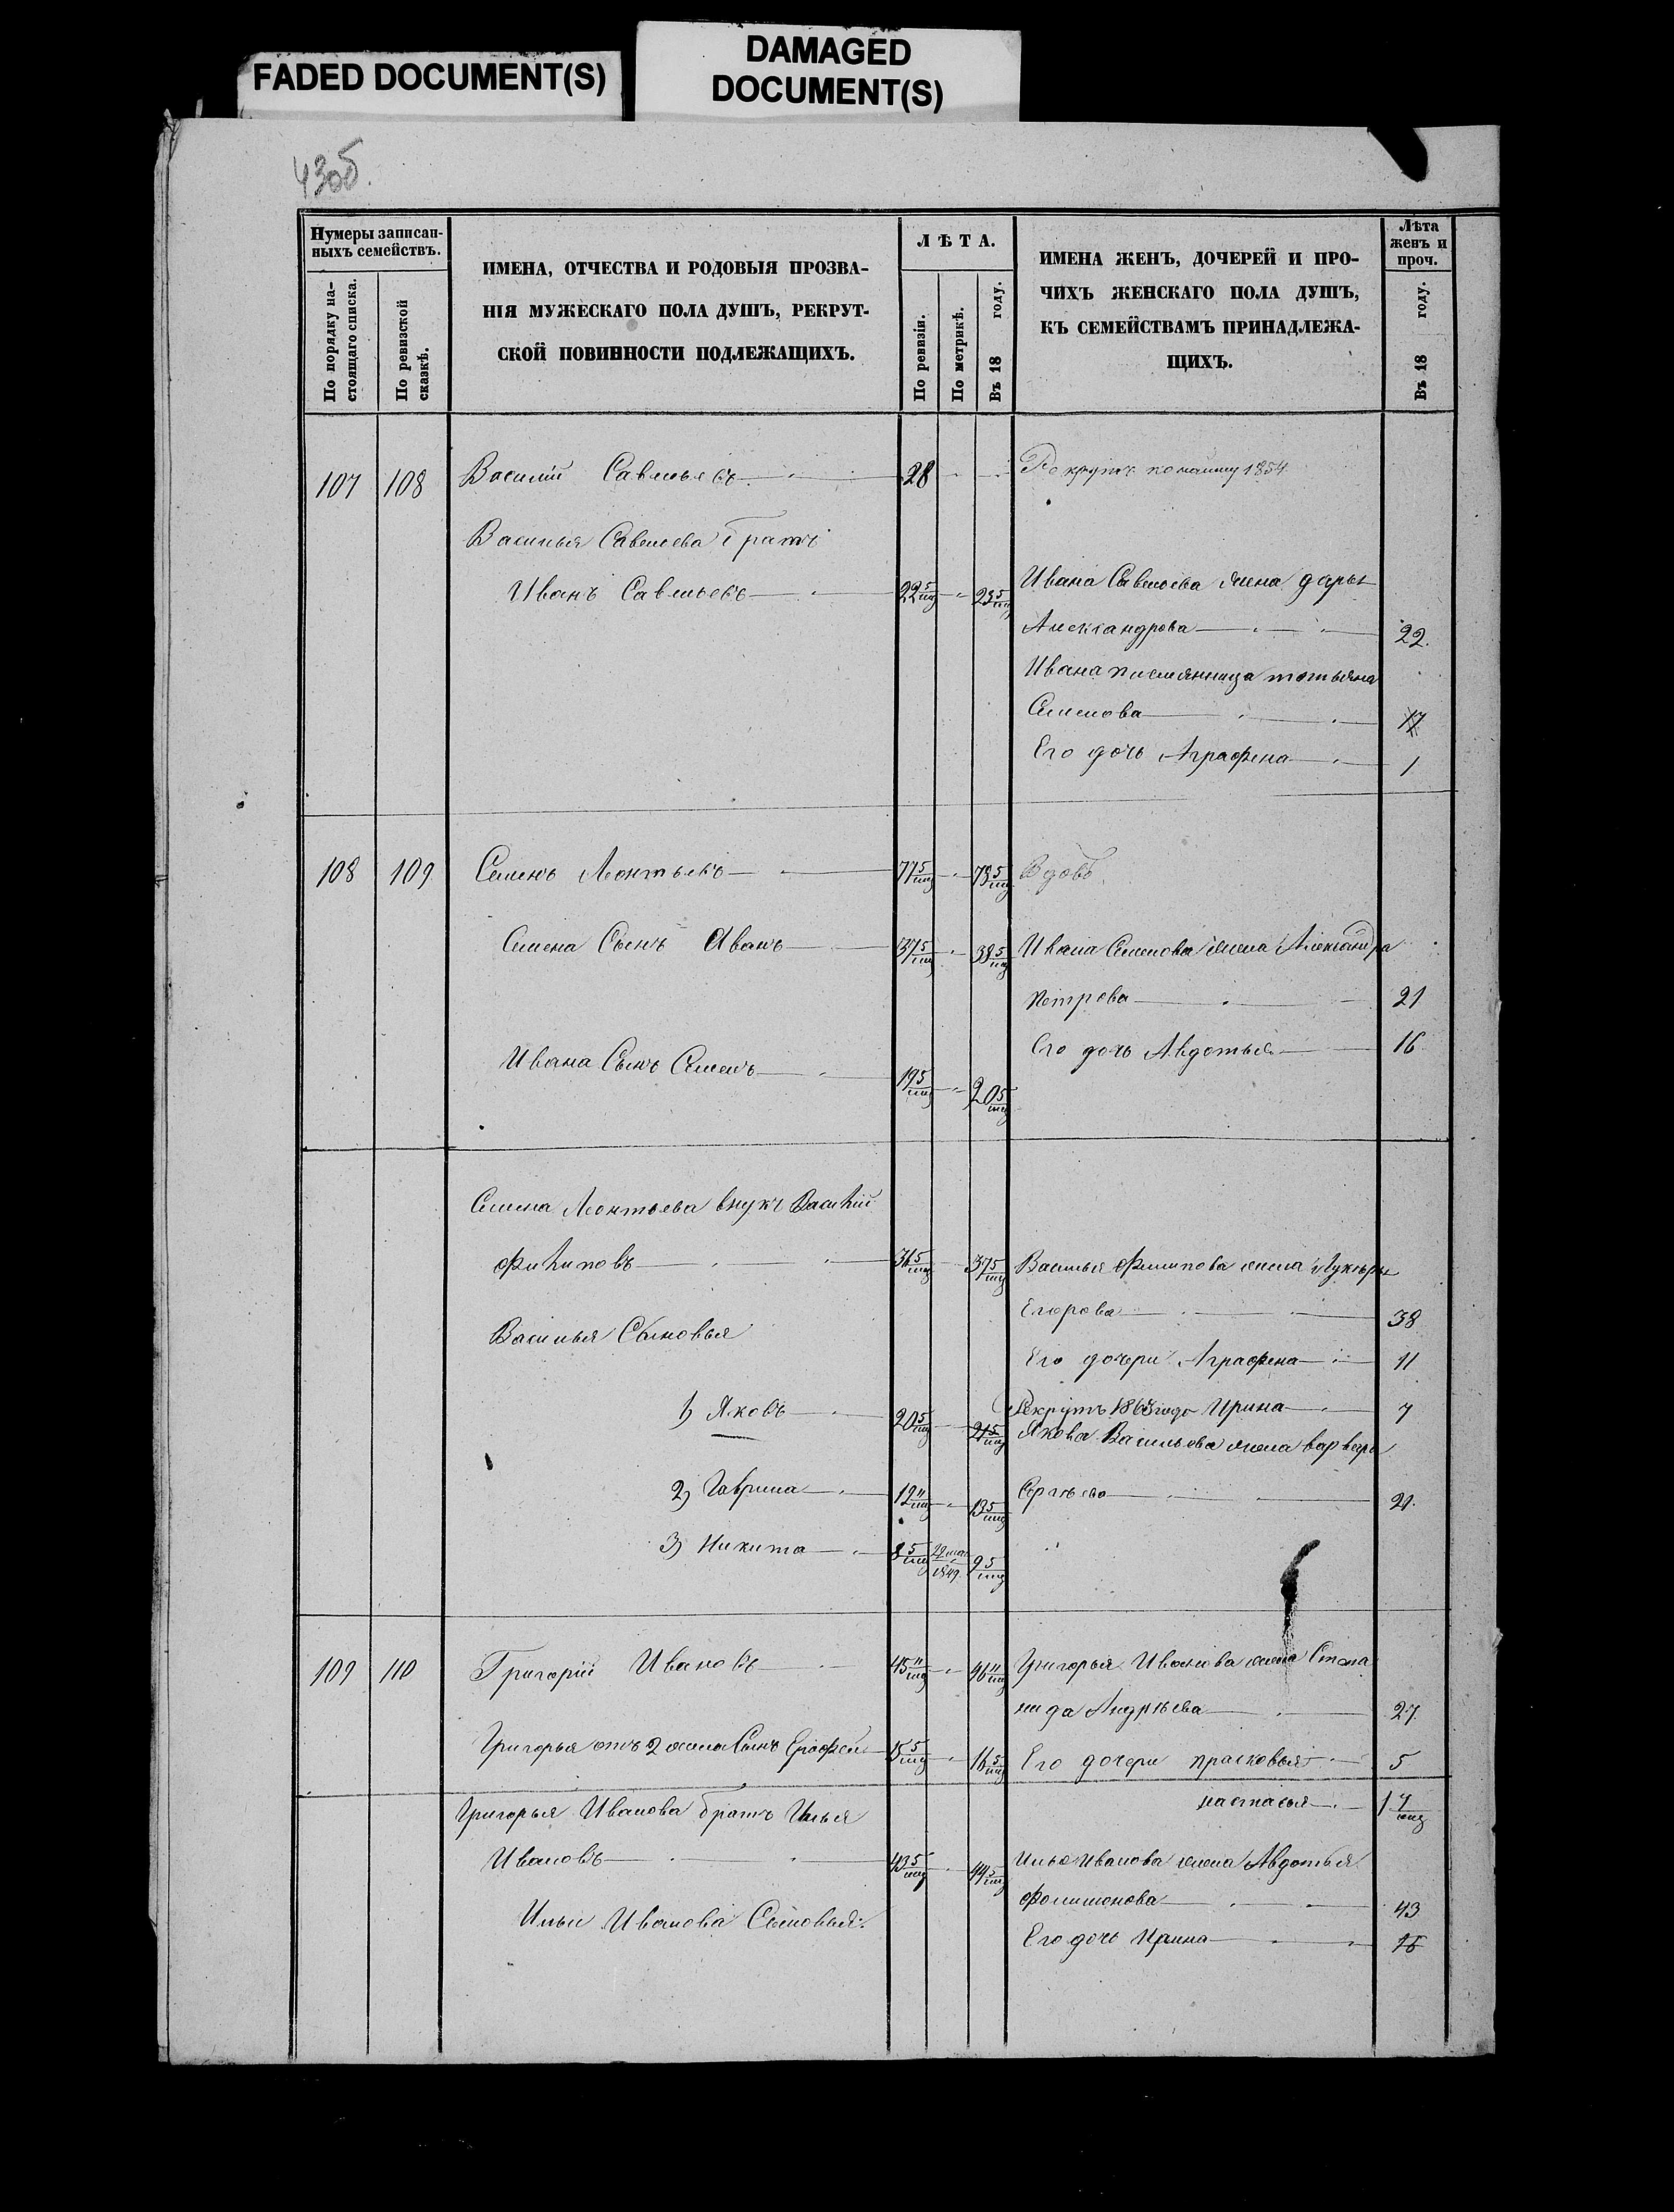 FADED DOCUMENT(S)
DAMAGED
DOCUMENT(S)
430б.
Нумеры записан-
ныхъ семействъ.
По порядку на-
стоящаго списка.
По ревизской
сказкѣ.
ИМЕНА, ОТЧЕСТВА И РОДОВЫЯ ПРОЗВА-
НІЯ МУЖЕСКАГО ПОЛА ДУШЪ, РЕКРУТ-
СКОЙ ПОВИННОСТИ ПОДЛЕЖАЩИХЪ.
ЛѢТА.
По ревизіи.
По метрикѣ.
Въ 18 году.
ИМЕНА ЖЕНЪ, ДОЧЕРЕЙ И ПРО-
ЧИХЪ ЖЕНСКАГО ПОЛА ДУШЪ,
КЪ СЕМЕЙСТВАМЪ ПРИНАДЛЕЖА-
ЩИХЪ.
Лѣта
женъ и
проч.
Въ 18 году.
107 108 Василій Савельевъ 28 Рекрутъ по найму 1854
Василья Савельева братъ
Иванъ Савельевъ 22 5/мц 23 5/мц Ивана Савельева жена дарья
Александрова 22.
Ивана племянница татьяна
Семенова 17
Его дочь Аграфена 1
108 109 Семенъ Леонтьевъ 77 5/мц 78 5/мц Вдовъ
Семена Сынъ Иванъ 37 5/мц 38 5/мц Ивана Семенова жена Александра
Петрова 21
Его дочь Авдотья 16
Ивана Сынъ Семенъ 19 5/мц 20 5/мц
Семена Леонтьева внукъ Василій
Филиповъ 36 5/мц 37 5/мц Василья Филипова жена Лукерья
Егорова 38
Василья Сыновья
Его дочери Аграфена 11
1) Яковъ 20 5/мц 21 5/мц Рекрутъ 1863 года Ирина 7
Якова Васильева жена варвара
2) Гаврила 12 11/мц 13 5/мц Сергѣева 21.
3) Никита 8 5/мц 1849 9 5/мц
109 110 Григорій Ивановъ 45 11/мц 46 11/мц Григорья Иванова жена Степа
нида Андрѣева 27.
Григорья отъ 2 жены Сынъ Ерофей 15 5/мц 16 5/мц Его дочери прасковья 5
настасья 1 7/мц
Григорья Иванова братъ Илья
Ивановъ 43 5/мц 44 5/мц Ильи Иванова жена Авдотья
Филимонова 43
Ильи Иванова Сыновья:
Его дочь Ирина 16